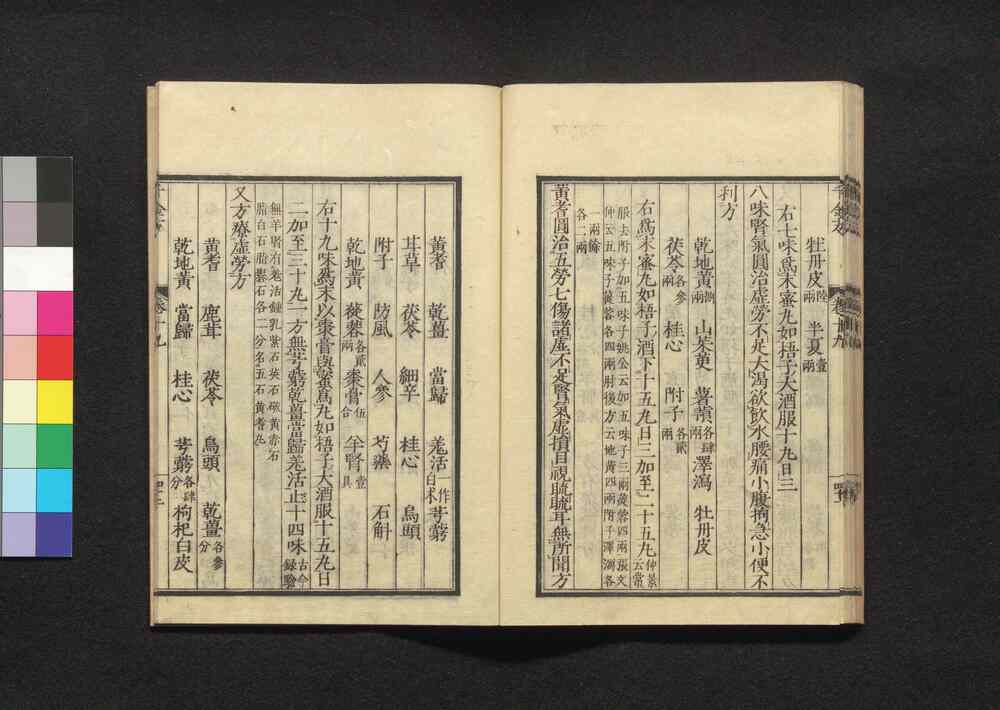 牡丹皮陸兩 半夏壹兩
右七味爲末蜜丸如梧子大酒服十丸日三
八味腎氣圓治虛勞不足大渴欲飲水腰痛小腹拘急小便不
利方
乾地黃捌兩 山茱萸 薯蕷各肆兩 澤瀉 牡丹皮
茯苓各參兩 桂心 附子各貳兩
右爲末蜜丸如梧子酒下十五丸日三加至二十五丸仲景云常
服去附子加五味子姚公云加五味子三兩蓯蓉四兩張文
仲云五味子蓯蓉各四兩肘後方云地黃四兩附子澤瀉各
一兩餘
各二兩
黃耆圓治五勞七傷諸虛不足腎氣虛損目視䀮䀮耳無所聞方
黃耆 乾薑 當歸 羌活一作白朮 芎藭
甘草 茯苓 細辛 桂心 烏頭
附子 防風 人參 芍藥 石斛
乾地黃 蓯蓉各貳兩 棗膏伍合 羊腎壹具
右十九味爲末以棗膏與蜜爲丸如梧子大酒服十五丸日
二加至三十丸一方無芎藭乾薑當歸羌活止十四味古今錄驗
無羊腎有羌活鍾乳紫石英石硫黃赤石
脂白石脂礜石各二分名五石黃耆丸
又方療虛勞方
黃耆 鹿茸 茯苓 烏頭 乾薑各參分
乾地黃 當歸 桂心 芎藭各肆分 枸杞白皮